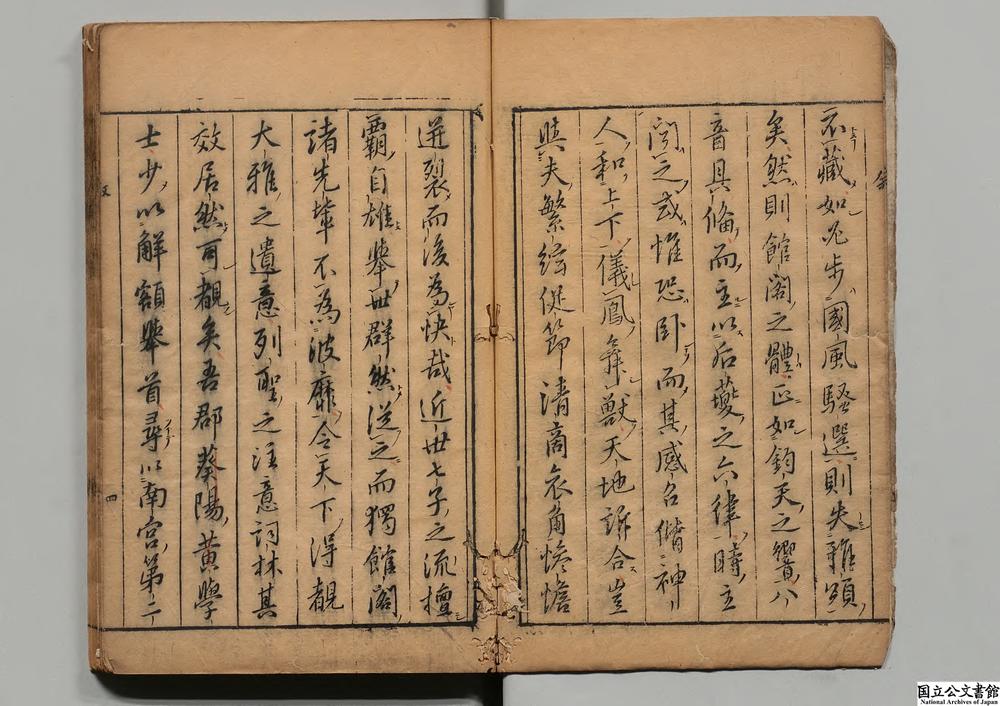 藏如步國風騷選則失雅頌
矣然則館閣之體正如鈞天之響八
音具俻而主以后夔之六律時主
聞之或惟恐卧而其感名偕神
人和上下儀鳳舞獸天地訢合豈
與夫繁絃促節清商衣角慘憺
迸裂而後為快哉近世七子之流擅
霸自雄舉世群然從之而獨館閣
諸先輩不為波靡令天下得覩
大雅之遺意列聖之注意詞林其
效居然可覩矣吾郡葵陽黄學
士少以解額舉首尋以南宮第二
四
国立公文書館
National Archives of Japan